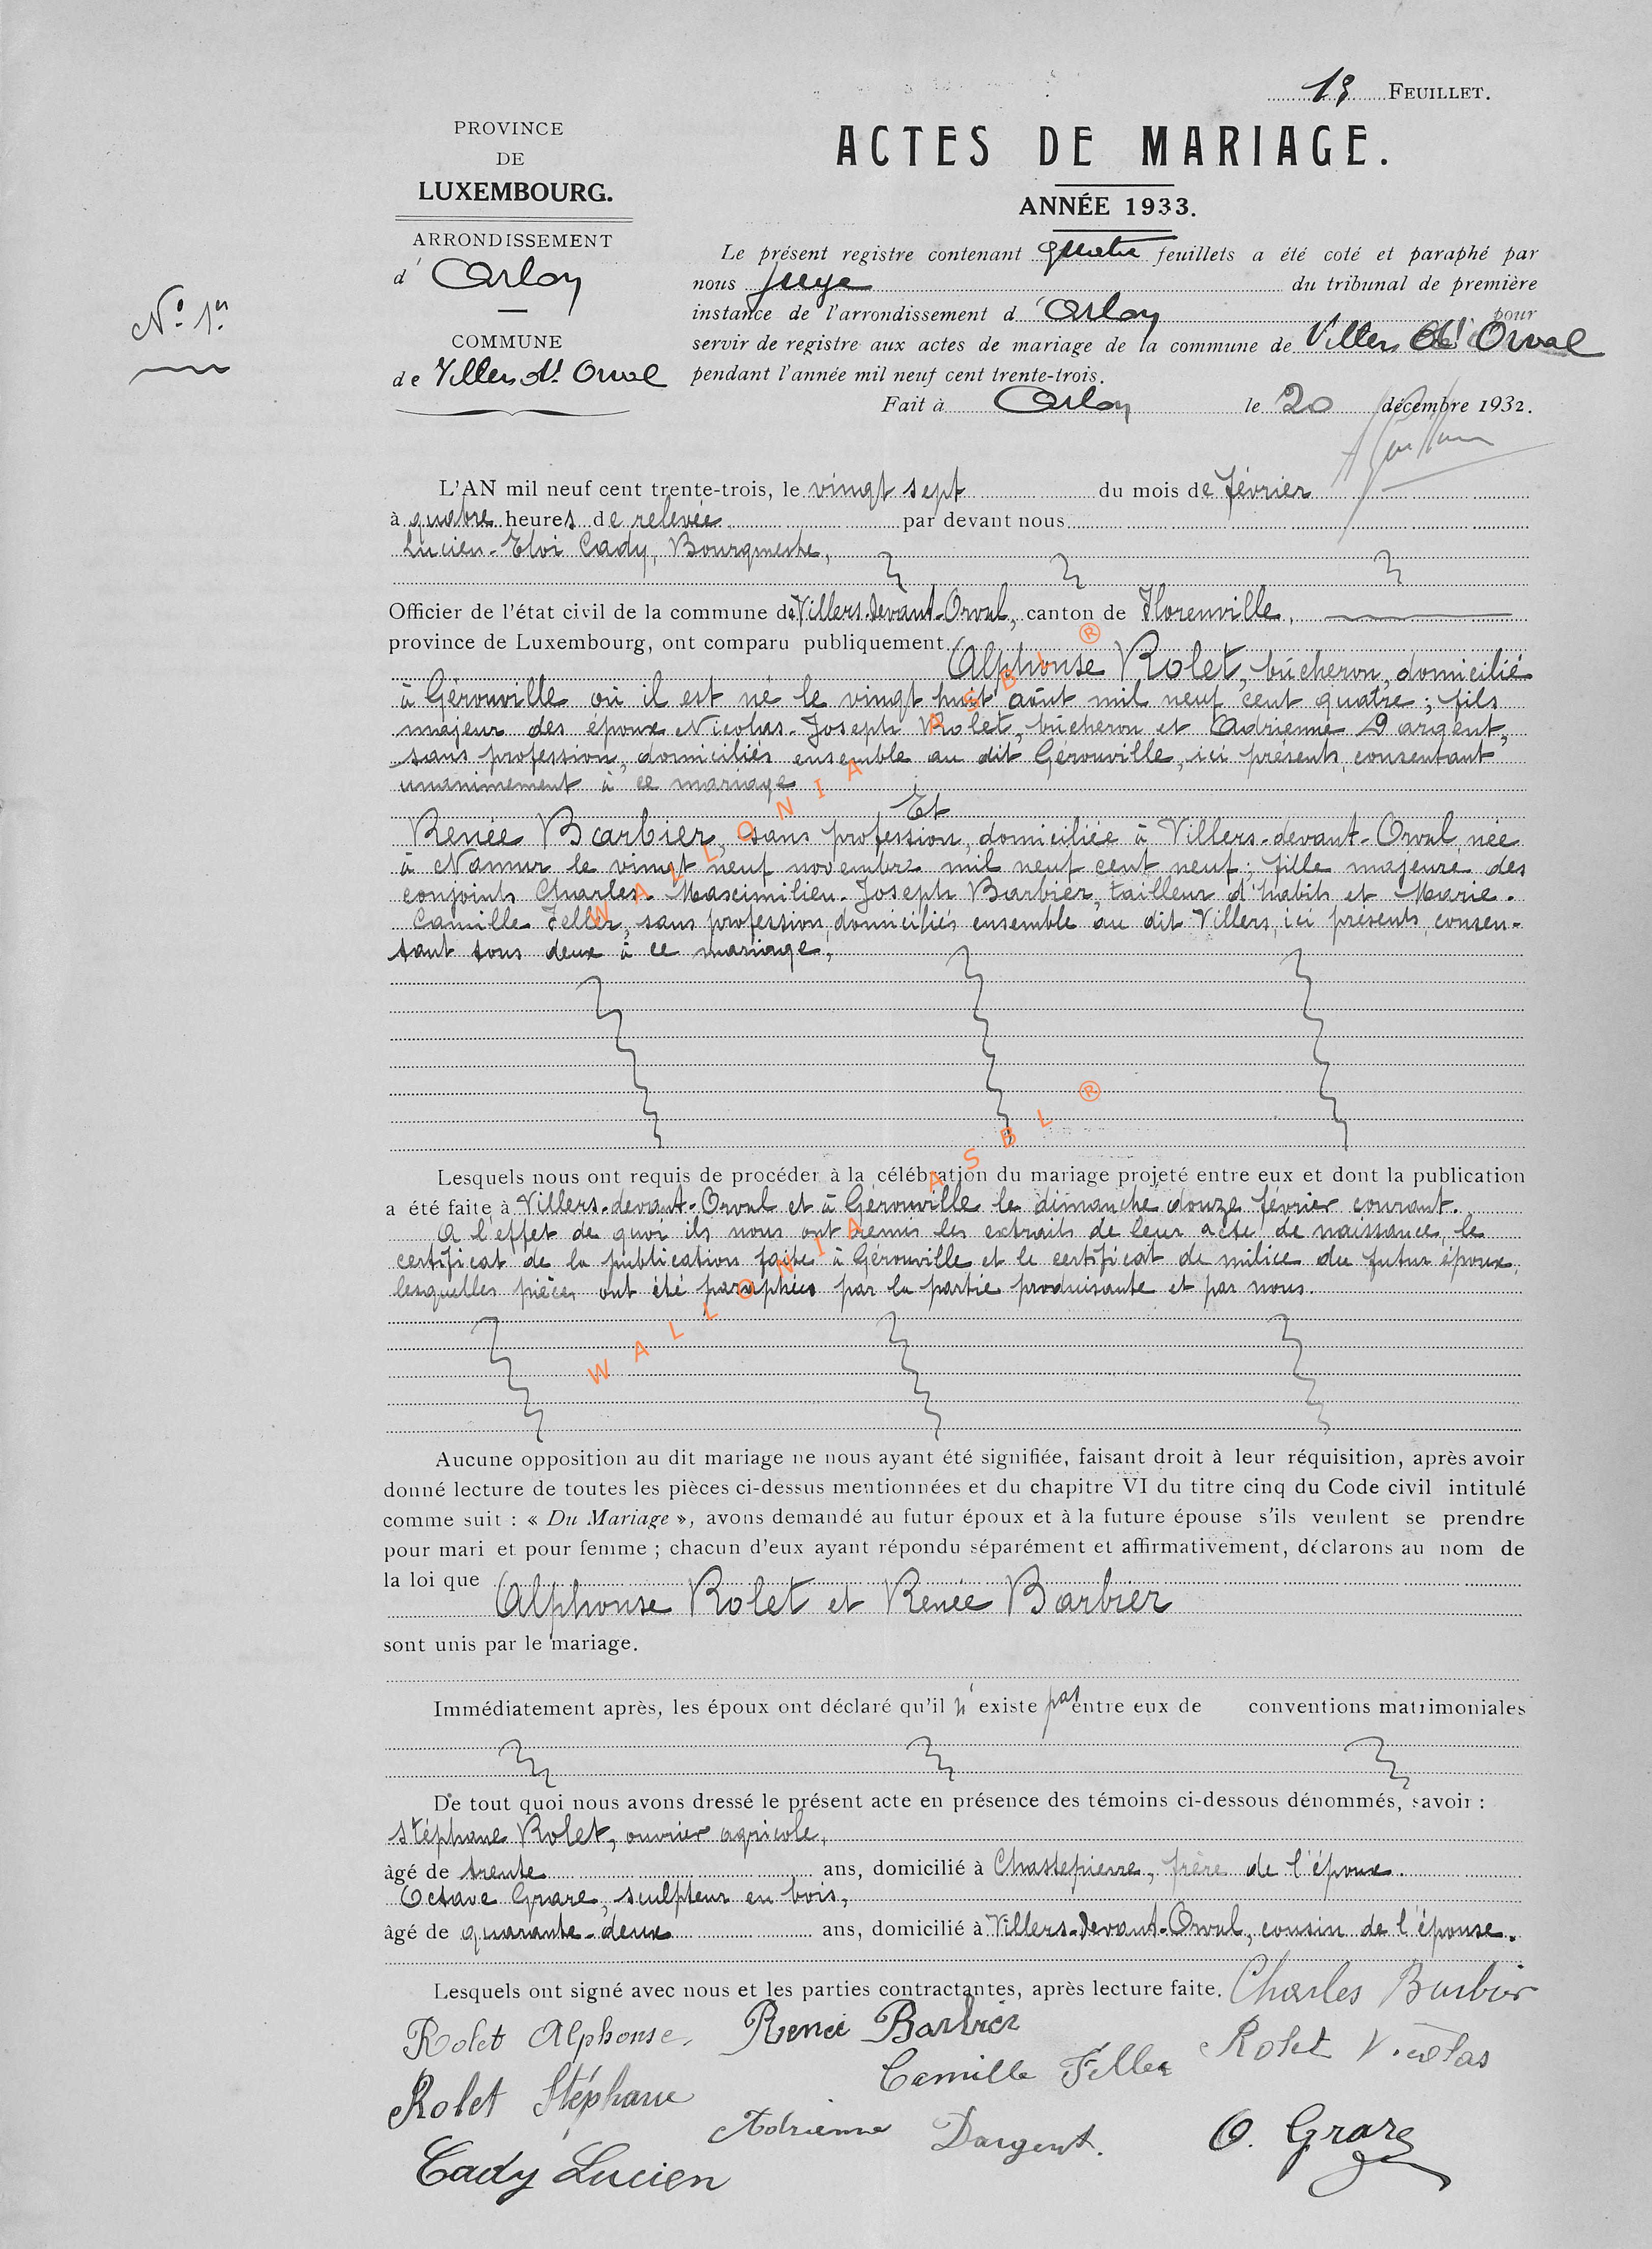 1er FEUILLET.
PROVINCE
DE
LUXEMBOURG.
ARRONDISSEMENT
d'Arlon
COMMUNE
de Villers dt Orval
N° 1er
ACTES DE MARIAGE.
ANNÉE 1933.
Le présent registre contenant quatre feuillets a été coté et paraphé par
nous juge du tribunal de première
instance de l'arrondissement d'Arlon pour
servir de registre aux actes de mariage de la commune de Villers dt Orval
pendant l'année mil neuf cent trente-trois.
Fait à Arlon le 20 décembre 1932.
L'AN mil neuf cent trente-trois, le vingt sept du mois de février
à quatre heures de relevée par devant nous
Lucien-Eloi Cady, Bourgmestre,
Officier de l'état civil de la commune de Villers-devant-Orval, canton de Florenville,
province de Luxembourg, ont comparu publiquement
Alphonse Rolet, bûcheron, domicilié
à Gérouville où il est né le vingt huit août mil neuf cent quatre ; fils
majeur des époux Nicolas-Joseph Rolet, bûcheron et Adrienne Dargent,
sans profession, domiciliés ensemble au dit Gérouville, ici présents, consentant
unanimement à ce mariage
Et
Renée Barbier, sans profession, domiciliée à Villers-devant-Orval, née
à Namur le vingt neuf novembre mil neuf cent neuf ; fille majeure des
conjoints Charles-Maximilien-Joseph Barbier, tailleur d'habits et Marie-
Camille Feller, sans profession, domiciliés ensemble au dit Villers, ici présents, consen-
tant tous deux à ce mariage,
Lesquels nous ont requis de procéder à la célébration du mariage projeté entre eux et dont la publication
a été faite à Villers-devant-Orval et à Gérouville le dimanche douze février courant.
A l'effet de quoi ils nous ont remis les extraits de leur acte de naissance, le
certificat de la publication faite à Gérouville et le certificat de milice du futur époux,
lesquelles pièces ont été paraphées par la partie produisante et par nous.
Aucune opposition au dit mariage ne nous ayant été signifiée, faisant droit à leur réquisition, après avoir
donné lecture de toutes les pièces ci-dessus mentionnées et du chapitre VI du titre cinq du Code civil intitulé
comme suit : « Du Mariage », avons demandé au futur époux et à la future épouse s'ils veulent se prendre
pour mari et pour femme ; chacun d'eux ayant répondu séparément et affirmativement, déclarons au nom de
la loi que
Alphonse Rolet et Renée Barbier
sont unis par le mariage.
Immédiatement après, les époux ont déclaré qu'il n'existe pas entre eux de conventions matrimoniales
De tout quoi nous avons dressé le présent acte en présence des témoins ci-dessous dénommés, savoir :
Stéphane Rolet, ouvrier agricole,
âgé de trente ans, domicilié à Chassepierre, frère de l'époux.
Octave Grare, sculpteur en bois,
âgé de quarante-deux ans, domicilié à Villers-devant-Orval, cousin de l'épouse.
Lesquels ont signé avec nous et les parties contractantes, après lecture faite. Charles Barbier
Rolet Alphonse. Renée Barbier
Camille Feller Rolet Nicolas
Rolet Stéphane
Adrienne Dargent. O. Grare
Cady Lucien
WALLONIA ASBL ®
WALLONIA ASBL ®